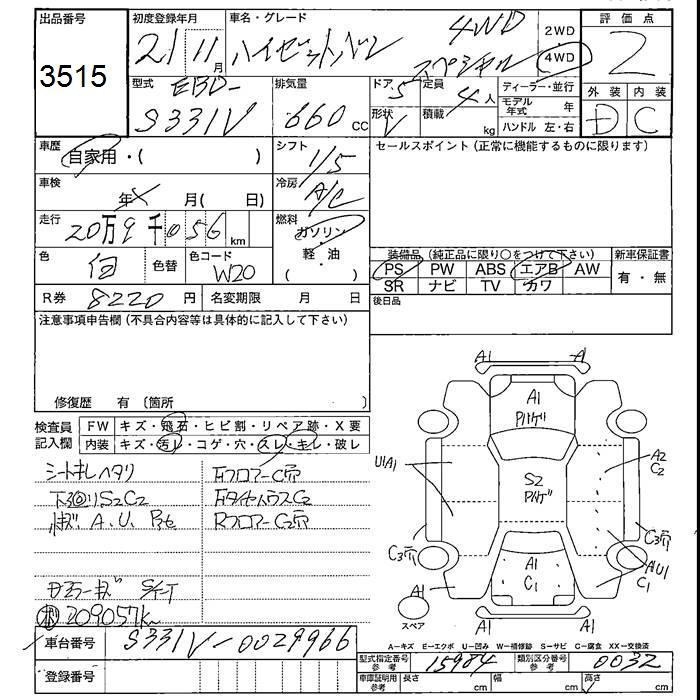 出品番号 初度登録年月 車名・グレード 評価点
3515 21 11月 ハイゼットバン 4WD スペシャル 2WD 4WD 2
型式 排気量 ドア 定員 ディーラー・並行 外装 内装
EBD-S331V 660cc 5 4人 モデル年式 年 D C
形状 V 積載 kg ハンドル 左・右
車歴 自家用・( ) シフト I/5 セールスポイント(正常に機能するものに限ります)
車検 年 月( 日) 冷房 A/C
走行 20万9千056km 燃料 ガソリン
軽・油 ( )
色 白 色替 色コード W20
装備品(純正品に限り○をつけて下さい) 新車保証書
PS PW ABS エアB AW 有・無
SR ナビ TV カワ
R券 8220円 名変期限 月 日 後日品
注意事項申告欄(不具合内容等は具体的に記入して下さい)
修復歴 有 (箇所
検査員記入欄 FW キズ・飛石・ヒビ割・リペア跡・X要
内装 キズ・汚レ・コゲ・穴・スレ・キレ・破レ
シートキレヘタリ FフロアーC穴
下廻りS2C2 FタイヤハウスC2
A.U RフロアーC2穴
209057km
車台番号 S331V-0029966
登録番号
A1 A1
A1
U1A1 S2 A2
C2
C3穴 A1 C3穴
C1 AU1
C1
A1 A1 A1
スペア
A-キズ E-エクボ U-凹み W-補修跡 S-サビ C-腐食 XX-交換済
型式指定番号 参考 15984 類別区分番号 参考 0032
車庫証明用 参考 長さ cm 幅 cm 高さ cm